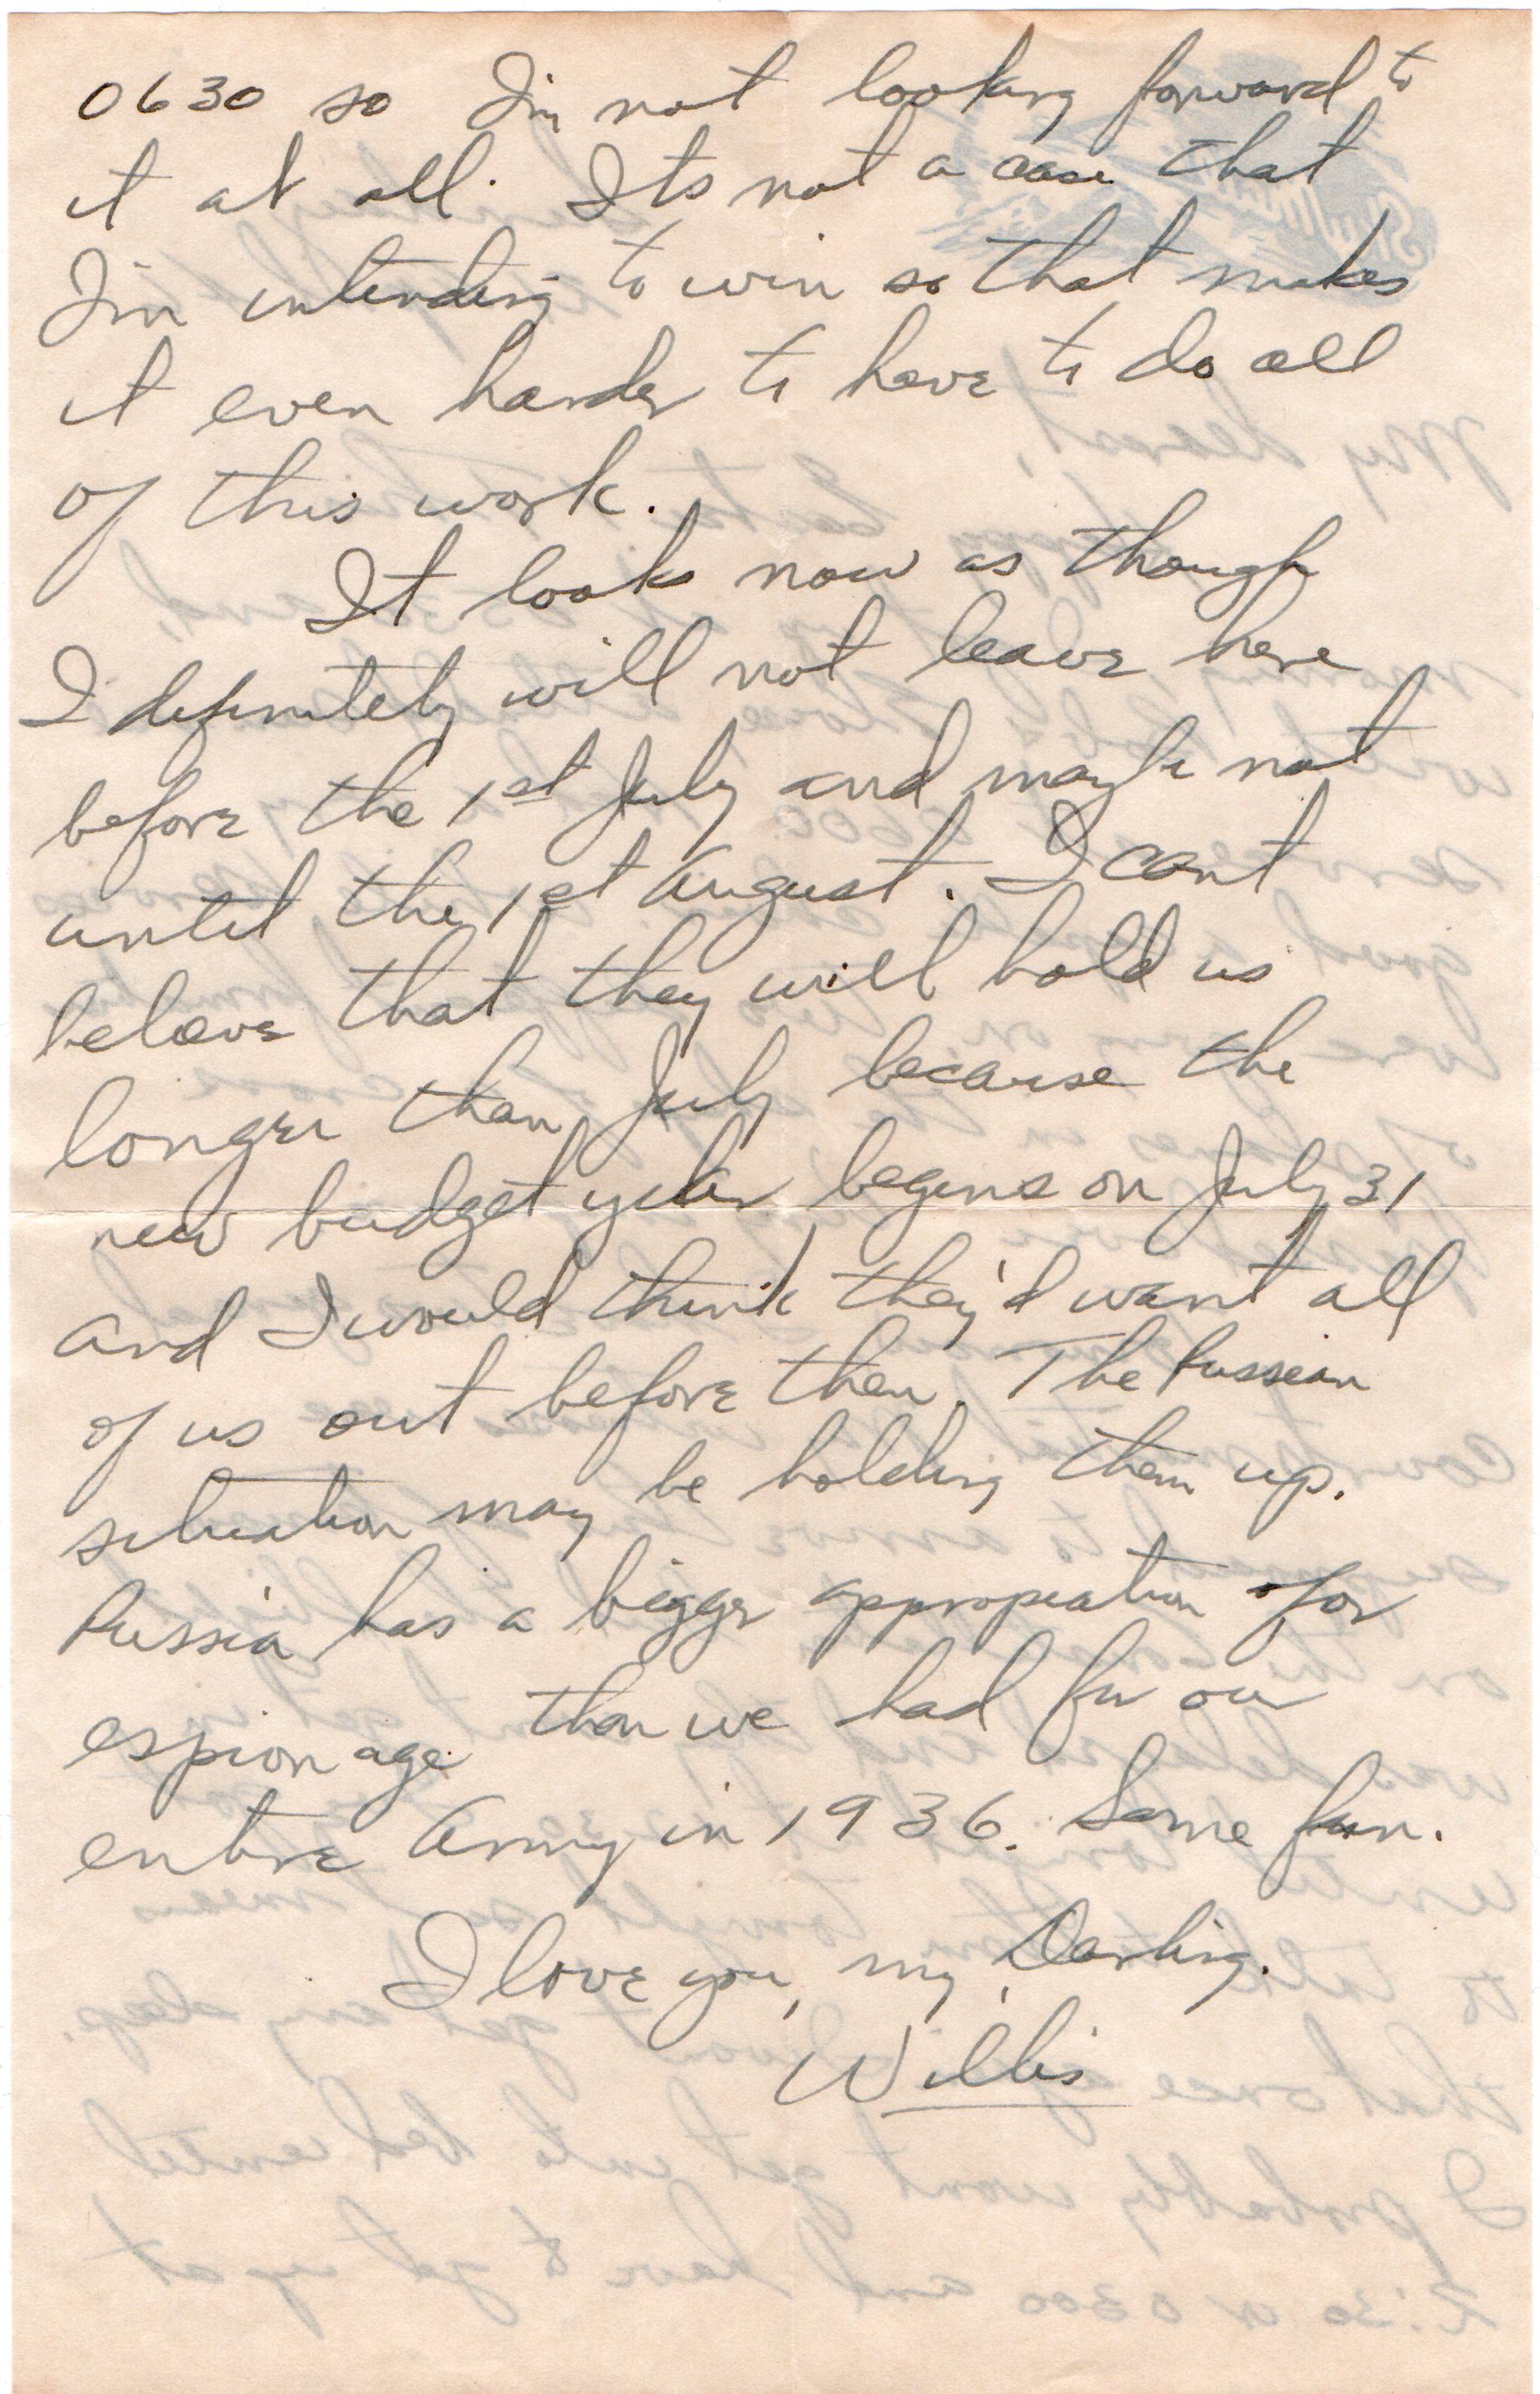 0630 so I'm not looking forward to
it at all. Its not a case that
I'm intending to win so that makes
it even harder to have to do all
of this work.
It looks now as though
I definitely will not leave here
before the 1st July and maybe not
until the 1st August. I cant
beleave that they will hold us
longer than July because the
new budget year begins on July 31
and I would think they'd want all
of us out before then. The Russian
situation may be holding them up.
Russia has a bigger appropriation for
espionage than we had for our
entire Army in 1936. Some fun.
I love you, my Darling.
Willis